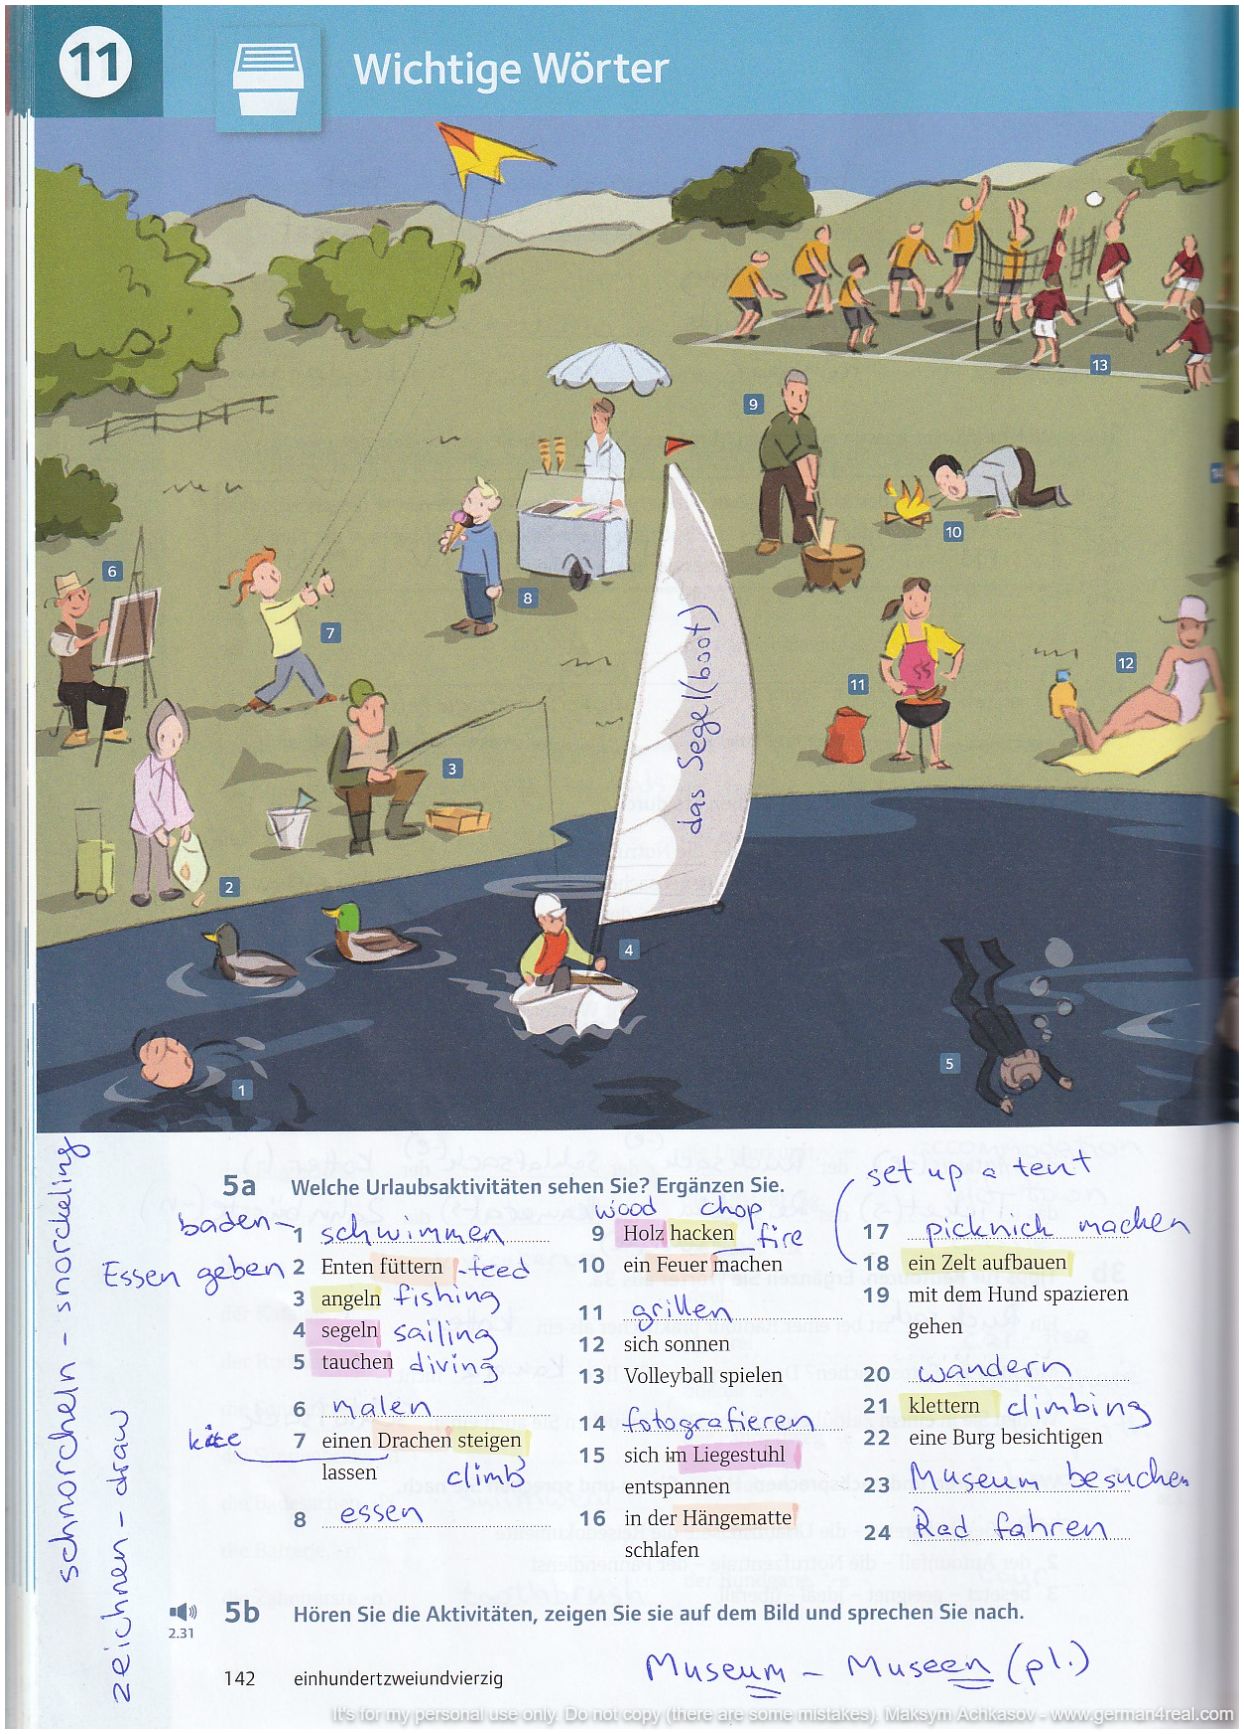 11
Wichtige Wörter
13
9
10
6
8
7
12
11
das Segel(boot)
3
2
4
5
1
set up a tent
5a Welche Urlaubsaktivitäten sehen Sie? Ergänzen Sie.
baden
1 schwimmen
Essen geben
2 Enten füttern - feed
3 angeln fishing
4 segeln sailing
5 tauchen diving
6 malen
kite
7 einen Drachen steigen
lassen climb
8 essen
wood chop
9 Holz hacken
fire
10 ein Feuer machen
11 grillen
12 sich sonnen
13 Volleyball spielen
14 fotografieren
15 sich im Liegestuhl
entspannen
16 in der Hängematte
schlafen
17 picknick machen
18 ein Zelt aufbauen
19 mit dem Hund spazieren
gehen
20 wandern
21 klettern climbing
22 eine Burg besichtigen
23 Museum besuchen
24 Rad fahren
schnorcheln - snorckeling
zeichnen - draw
2.31
5b Hören Sie die Aktivitäten, zeigen Sie sie auf dem Bild und sprechen Sie nach.
Museum - Museen (pl.)
142 einhundertzweiundvierzig
It's for my personal use only. Do not copy (there are some mistakes). Maksym Achkasov - www.german4real.com